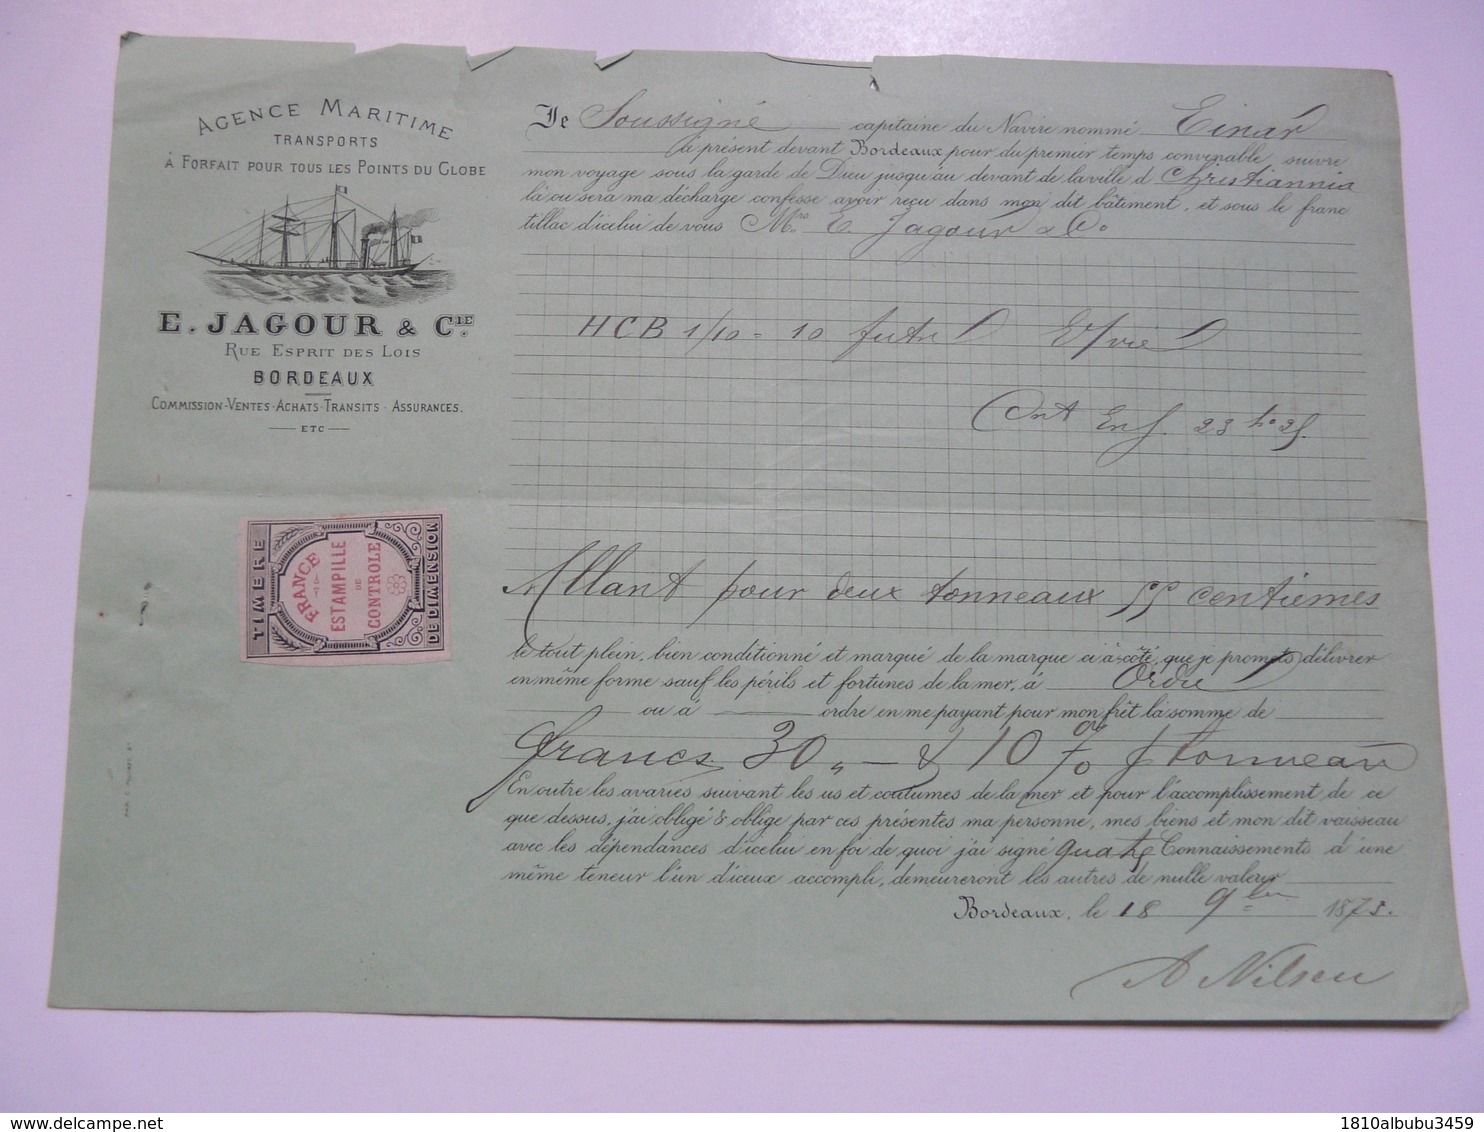 AGENCE MARITIME
TRANSPORTS
À FORFAIT POUR TOUS LES POINTS DU GLOBE
E. JAGOUR & CIE.
RUE ESPRIT DES LOIS
BORDEAUX
COMMISSION-VENTES-ACHATS-TRANSITS-ASSURANCES.
ETC
TIMBRE
FRANCE
ESTAMPILLE
DE
CONTROLE
DE DIMENSION
Je Soussigné capitaine du Navire nommé Einar
à présent devant Bordeaux pour du premier temps convenable suivre
mon voyage sous la garde de Dieu jusqu'au devant de la ville d Christiannia
là ou sera ma décharge confesse avoir reçu dans mon dit bâtiment, et sous le franc
tillac d'icelui de vous Mrs. E. Jagour & Co
HCB 1/10 = 10
Cont Enf. 23
Allant pour deux tonneaux 55 centièmes
le tout plein, bien conditionné et marqué de la marque ci à-côté, que je promets délivrer
en même forme sauf les périls et fortunes de la mer, à Ordre
ou à ordre en me payant pour mon frêt la somme de
francs 30 „ — & 10 % p tonneau
En outre les avaries suivant les us et coutumes de la mer et pour l'accomplissement de ce
que dessus, j'ai obligé & oblige par ces présentes ma personne, mes biens et mon dit vaisseau
avec les dépendances d'icelui en foi de quoi j'ai signé quatre Connaissements d'une
même teneur l'un d'iceux accompli, demeureront les autres de nulle valeur
Bordeaux, le 18 9bre 1875.
A Nilsen
1810albubu3459